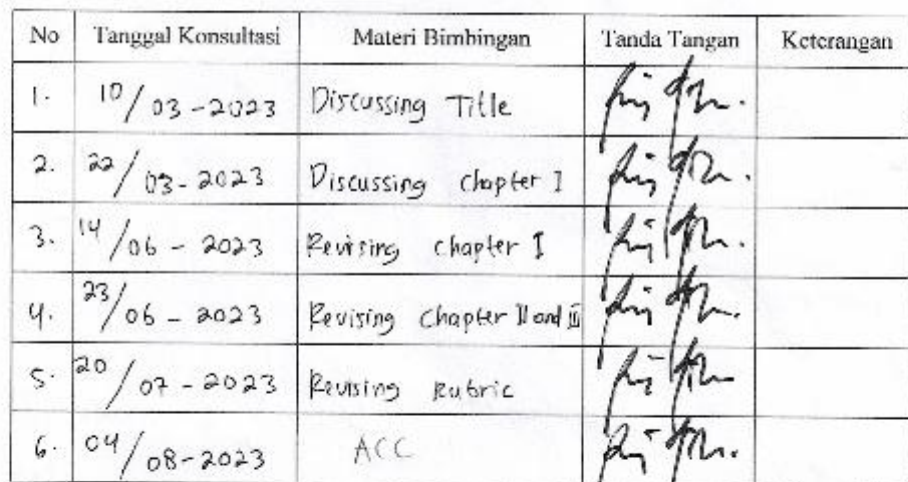 No Tanggal Konsultasi Materi Bimbingan Tanda Tangan Keterangan
1. 10/03-2023 Discussing Title
2. 22/03-2023 Discussing chapter I
3. 14/06-2023 Revising chapter I
4. 23/06-2023 Revising chapter II and III
5. 20/07-2023 Revising Rubric
6. 04/08-2023 ACC